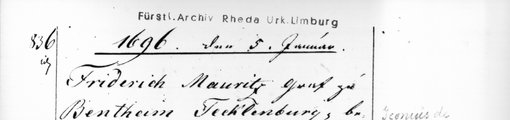 Fürstl. Archiv Rheda Urk. Limburg
836
1696. den 5. Januar.
Friderich Mauritz Graf zu
Bentheim Tecklenburg, be-